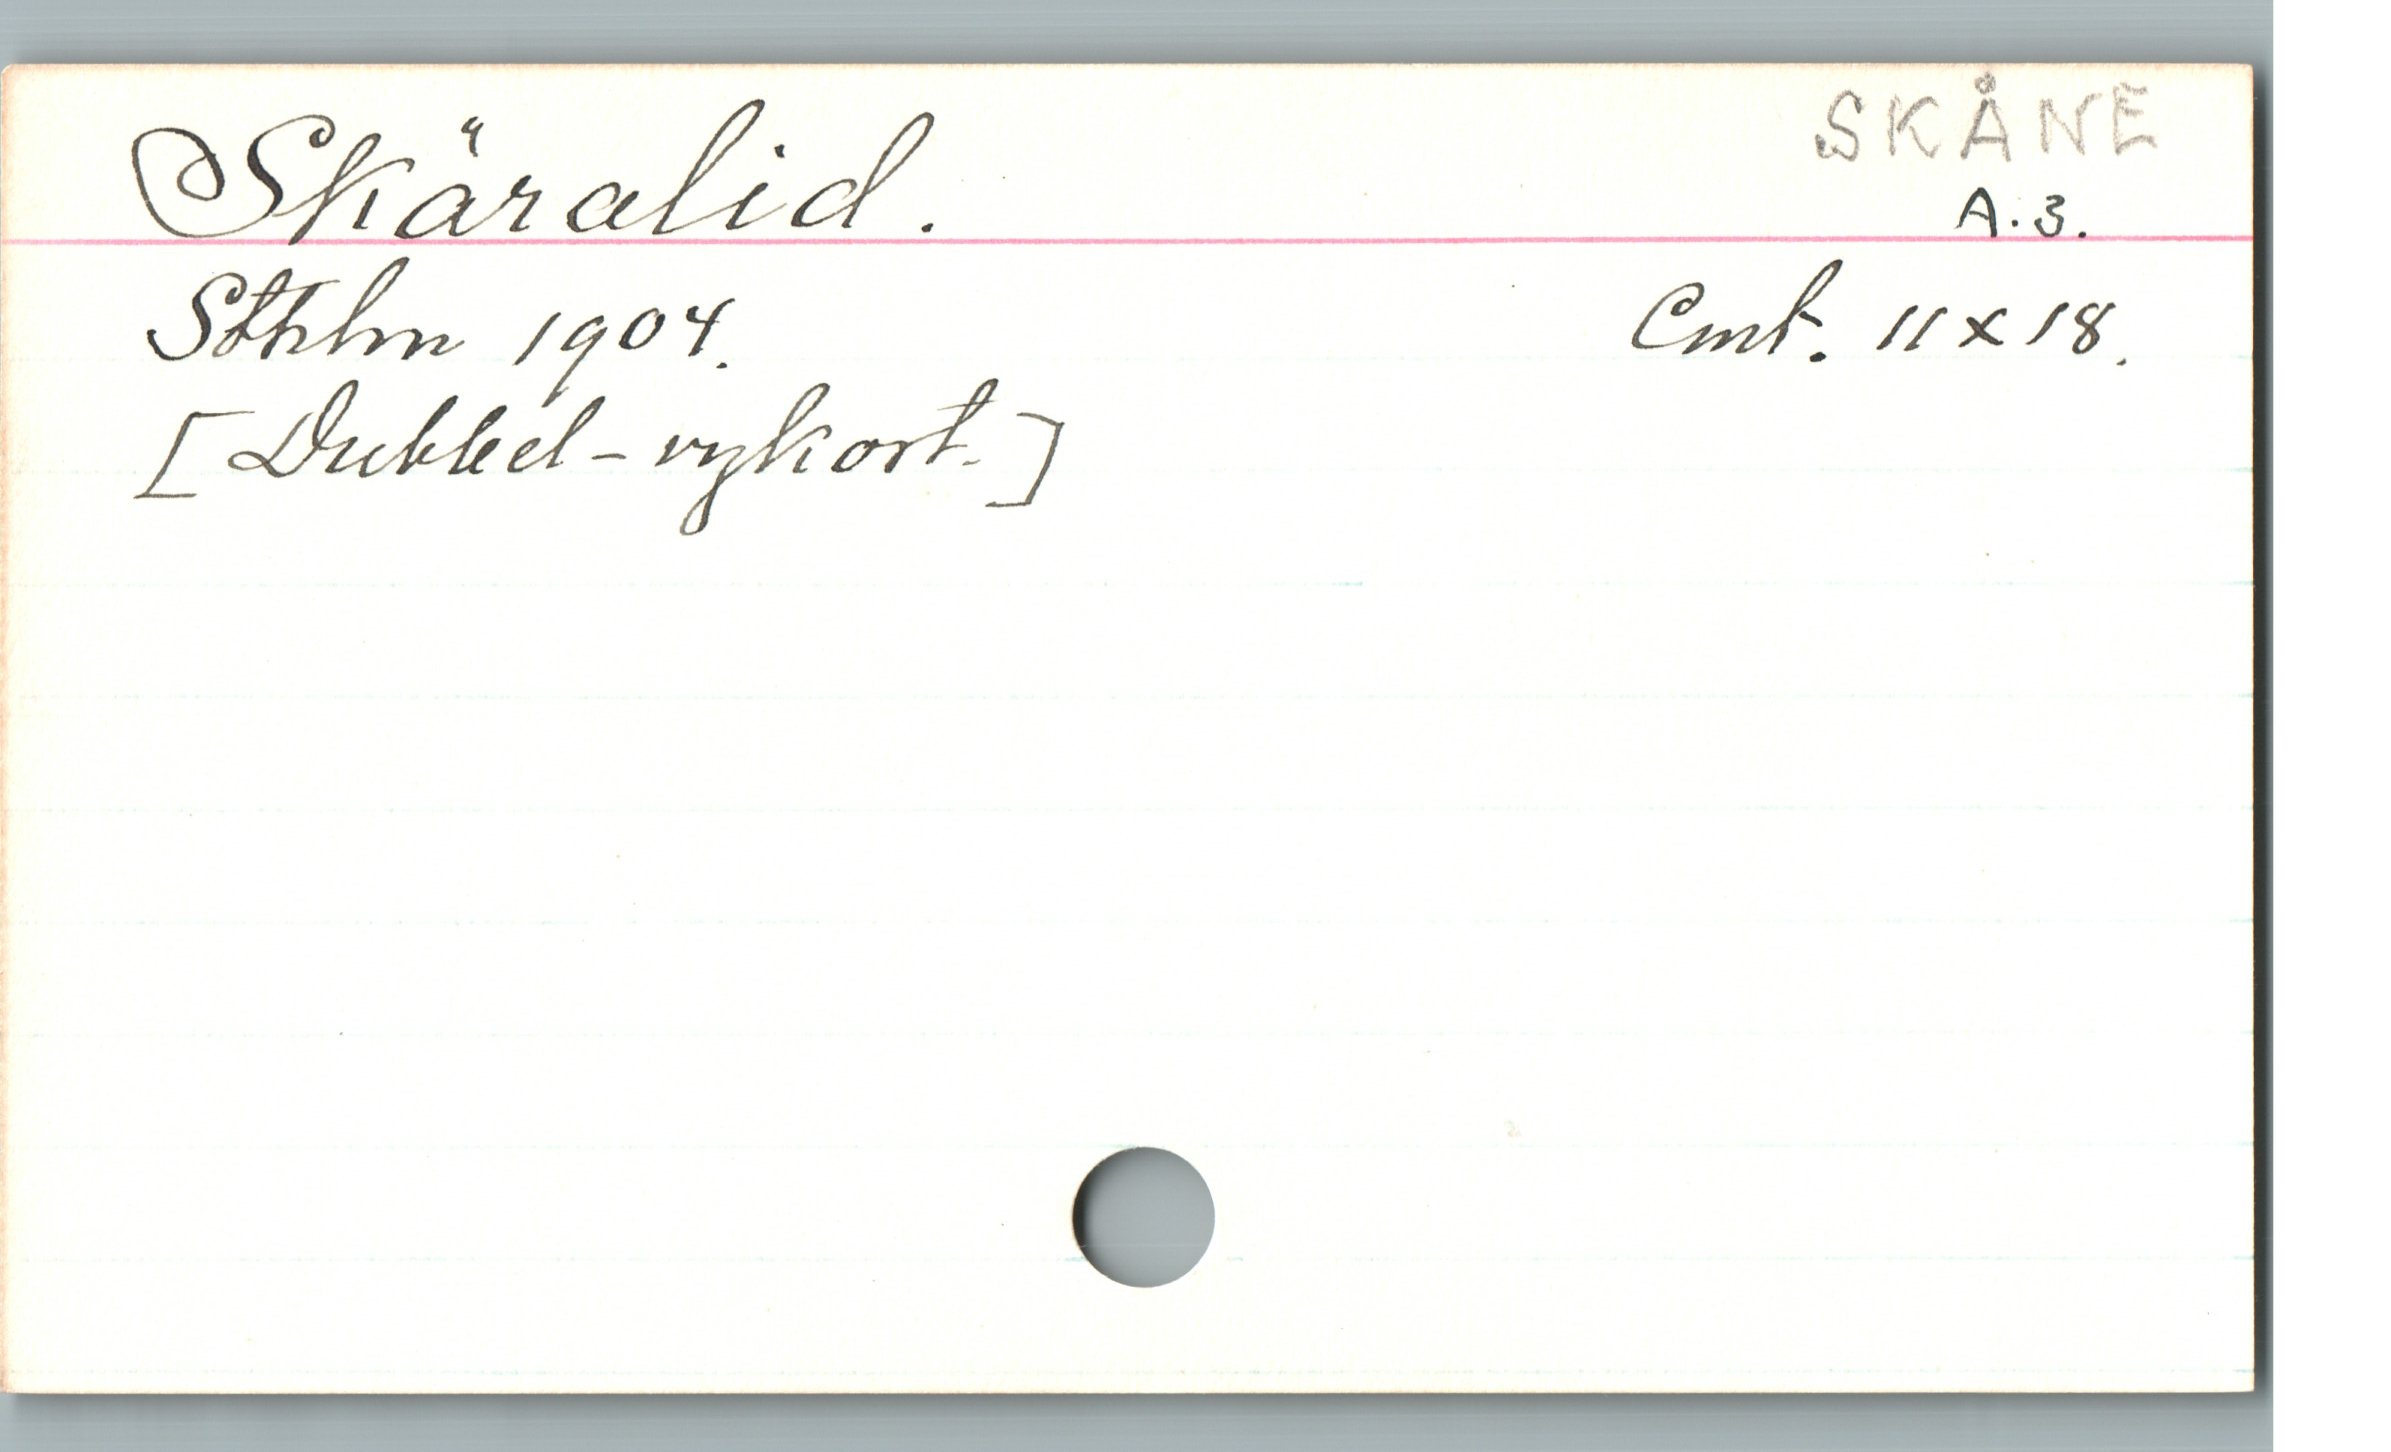 SKÅNE
Skäralid.
A. 3.
Sthlm 1904.
Cmt. 11 x 18.
[Dubbel-vykort.]